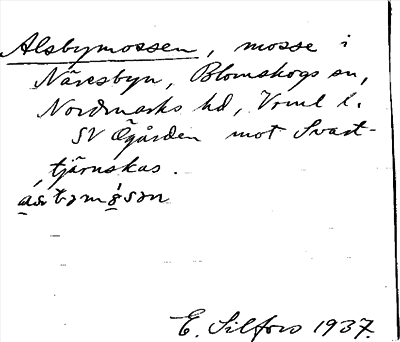 Alsbymossen, mosse i
Näresbyn, Blomskogs sn,
Nordmarks hd, Vrml l.
SV Ögården mot Svart-
tjärnskas.
E. Silfors 1937.